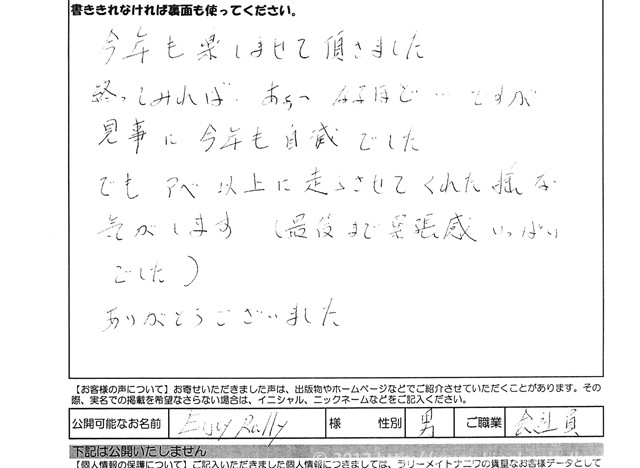 書ききれなければ裏面も使ってください。
今年も楽しませて頂きました
終ってみれば、あぁ〜 なるほど… ですが
見事に今年も自滅でした
でも アベ以上に走らさせてくれた様な
気がします （最後まで緊張感いっぱい
でした）
ありがとうございました
【お客様の声について】お寄せいただきました声は、出版物やホームページなどでご紹介させていただくことがあります。その
際、実名での掲載を希望なさらない場合は、イニシャル、ニックネームなどをご記入ください。
公開可能なお名前 Rally 様 性別 男 ご職業 会社員
下記は公開いたしません
【個人情報の保護について】ご記入いただきました個人情報につきましては、ラリーメイトナニワの貴重なお客様データとして